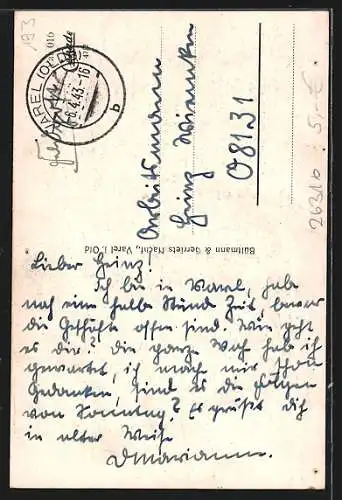 VAREL (OLDB)
6.4.43-16
b
Feldpost
Arbeitsmann
Heinz Wienken
08131
26316 5,-€
Bültmann & Gerriets Nachf., Varel i. Old
Lieber Heinz!
Ich bin in Varel, habe
noch eine halbe Stunde Zeit, bevor
die Geschäfte offen sind. Wie geht
es dir? Die ganze Woch hab ich
gewartet, ich mach mir schon
Gedanken, sind es die Folgen
von Sonntag? Es grüßt dich
in alter Weise
Marianne.